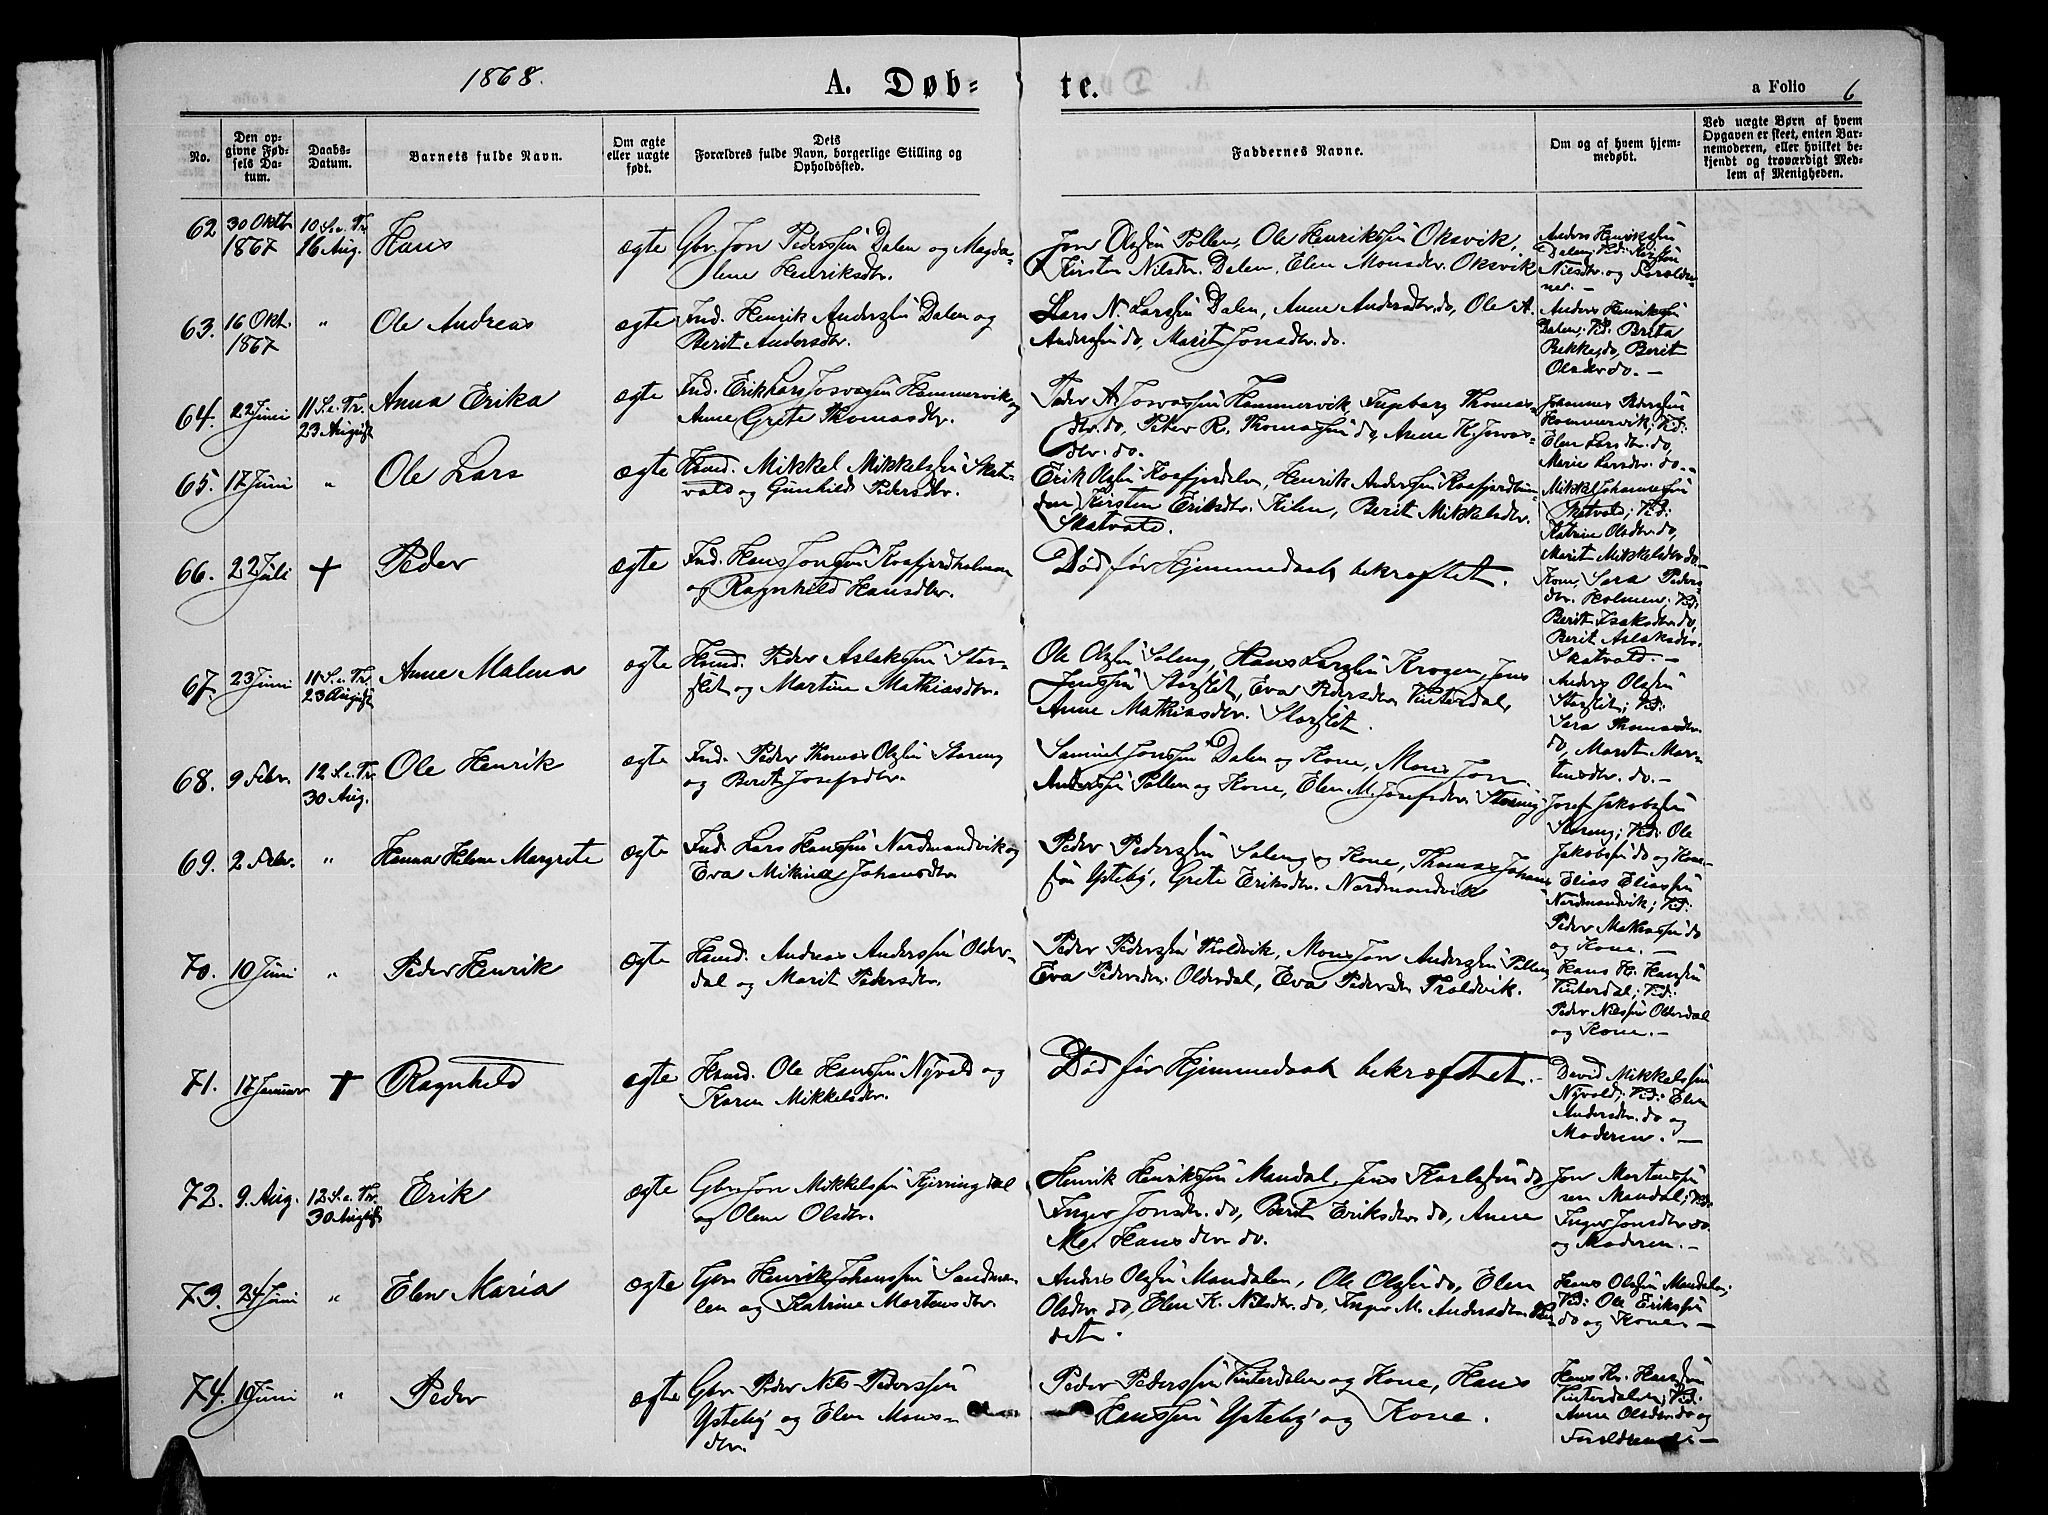 1868.
A. Døb-
te.
a Folio 6
No.
Den op-
givne Fød-
sels Da-
tum.
Daabs-
Datum.
Barnets fulde Navn.
Om ægte
eller uægte
født.
Dets
Forældres fulde Navn, borgerlige Stilling og
Opholdssted.
Faddernes Navne.
Om og af hvem hjem-
medøbt.
Ved uægte Børn af hvem
Opgaven er skeet, enten Bar-
nemoderen, eller hvilket be-
kjendt og troværdigt Med-
lem af Menigheden.
62.
30 Oktbr.
1867
10 S. e. Tr.
16 Aug.
Hans
ægte
Gbr. Jon Pederssen Dalen og Magda-
lene Henriksdtr.
Jon Olssen Pollen, Ole Henrikssen Oksvik,
Kirsten Nilsdtr. Dalen, Elen Monsdtr. Oksvik
Anders Henrikssen
Dalen; Vid: Kirsten
Nilsdtr. og Foreldre-
ne. —
63.
16 Okt.
1867
"
Ole Andreas
ægte
Ind. Henrik Anderssen Dalen og
Berit Andersdtr.
Lars N. Larssen Dalen, Anne Andersdtr. do, Ole A.
Anderssen do, Marit Jonsdtr. do.
Anders Henrikssen
Dalen; Vid: Brita
Bekke do, Berit
Olsdtr do. —
64.
22 Juni
11 S. e. Tr.
23 August
Anna Erika
ægte
Ind. Erik Lars Josvassen Hammervik og
Anne Grete Thomasdtr.
Peder A. Josvassen Hammervik, Ingeborg Thomas-
dtr. do, Peter R. Thomassen do, Anne K. Josvas-
dtr. do.
Johannes Pederssen
Hammervik; Vid:
Elen Larsdtr. do,
Marie Larsdtr. do. —
65.
17 Juni
"
Ole Lars
ægte
Hsmd. Mikkel Mikkelssen Skat-
vold og Gunhild Pedersdtr.
Erik Olssen Kaafjordalen, Henrik Anderssen Kaafjordbun-
den, Kirsten Eriksdtr. Kilen, Berit Mikkelsdtr.
Skatvold.
Mikkel Johannessen
Skatvold; Vid:
Katrine Olsdtr do,
Marit Mikkelsdtr do. —
66.
22 Juli
+
Peder
ægte
Ind. Hans Jonssen Kaafjordholmen
og Ragnhild Hansdtr.
Død før Hjemmedaab bekræftet.
Kone Sara Peders-
dtr. Holmen; Vid:
Berit Isaksdtr. do,
Berit Aslaksdtr.
Skatvold. —
67.
23 Juni
11 S. e. Tr.
23 August
Anne Malena
ægte
Hsmd. Peder Aslakssen Stor-
slet og Martine Mathiasdtr.
Ole Olssen Soleng, Hans Larssen Krogen, Jens
Jenssen Storslet, Eva Pedersdtr. Vinterdal,
Anne Mathiasdtr. Storslet.
Anders Olssen
Storslet; Vid:
Sara Thomasdtr.
do, Marit Mor-
tensdtr. do. —
68.
9 Febr.
12 S. e. Tr.
30 Aug.
Ole Henrik
ægte
Ind. Peder Thomas Olssen Storeng
og Berit Josefsdtr.
Samuel Jonssen Dalen og Kone, Mons Jon
Anderssen Pollen og Kone, Elen M. Josefsdtr. Storeng
Josef Jakobssen
Storeng; Vid: Ole
Jakobssen do og Kone —
69.
2 Febr.
"
Hanna Helene Margrete
ægte
Ind. Lars Hanssen Nordmandvik og
Eva Mikina Johansdtr.
Peder Pederssen Soleng og Kone, Thomas Johans-
sen Ysteby, Grete Eriksdtr. Nordmandvik
Elias Eliassen
Nordmandvik; Vid:
Peder Mathiassen do
og Kone. —
70.
10 Juni
"
Peder Henrik
ægte
Hsmd. Andreas Anderssen Older-
dal og Marit Pedersdtr.
Peder Pederssen Troldvik, Mons Jon Anderssen Pollen,
Eva Pedersdtr. Olderdal, Eva Pedersdtr Troldvik.
Hans H. Hanssen
Vinterdal; Vid:
Peder Nilssen Olderdal
og Kone. —
71.
17 Januar
+
Ragnhild
ægte
Hsmd. Ole Hanssen Nyvold og
Karen Mikkelsdtr.
Død før Hjemmedaab bekræftet. —
David Mikkelssen
Nyvold; Vid: Elen
Andersdtr. do og
Moderen. —
72.
9. Aug.
12 S. e. Tr.
30 August
Erik
ægte
Gbr. Jon Mikkelssen Kjerringdal
og Olene Olsdtr.
Henrik Henrikssen Mandal, Jens Karlssen do,
Inger Jonsdtr. do, Berit Eriksdtr do, Anne
M. Hansdtr do.
Jon Mortenssen
Mandal; Vid:
Inger Jonsdtr do
og Moderen. —
73.
24 Juni
"
Elen Maria
ægte
Gbr Henrik Johanssen Samdmæ-
len og Katrine Martensdtr.
Anders Olssen Mandalen, Ole Olssen do, Elen
Olsdtr do, Elen K. Nilsdtr. do, Inger M. Andersdtr.
Hans Olssen Mandalen;
Vid: Ole Erikssen
do og Konen —
74.
10 Juni
"
Peder
ægte
Gbr Peder Nils Pederssen
Ysteby og Elen Mons-
dtr.
Peder Pederssen Vinterdalen og Kone, Hans
Hanssen Ysteby og Kone.
Hans Hr. Hanssen
Vinterdalen; Vid:
Anne Olsdtr. do og
Forældrene —